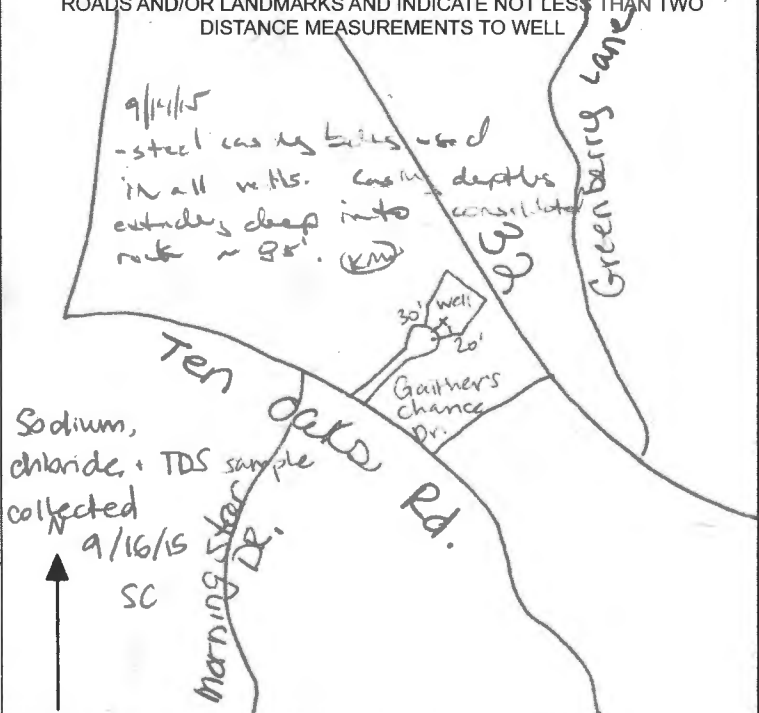 ROADS AND/OR LANDMARKS AND INDICATE NOT LESS THAN TWO
DISTANCE MEASUREMENTS TO WELL
9/14/15
-steel casing being used
in all wells. Casing depths
extending deep into consolidated
rock ~ 95'. KM
Greenberry Lane
32
30' well
20'
Gaither's
chance
Dr.
Ten Oaks Rd.
Sodium,
chloride, + TDS sample
collected
9/16/15
SC
N
Morning Star Dr.